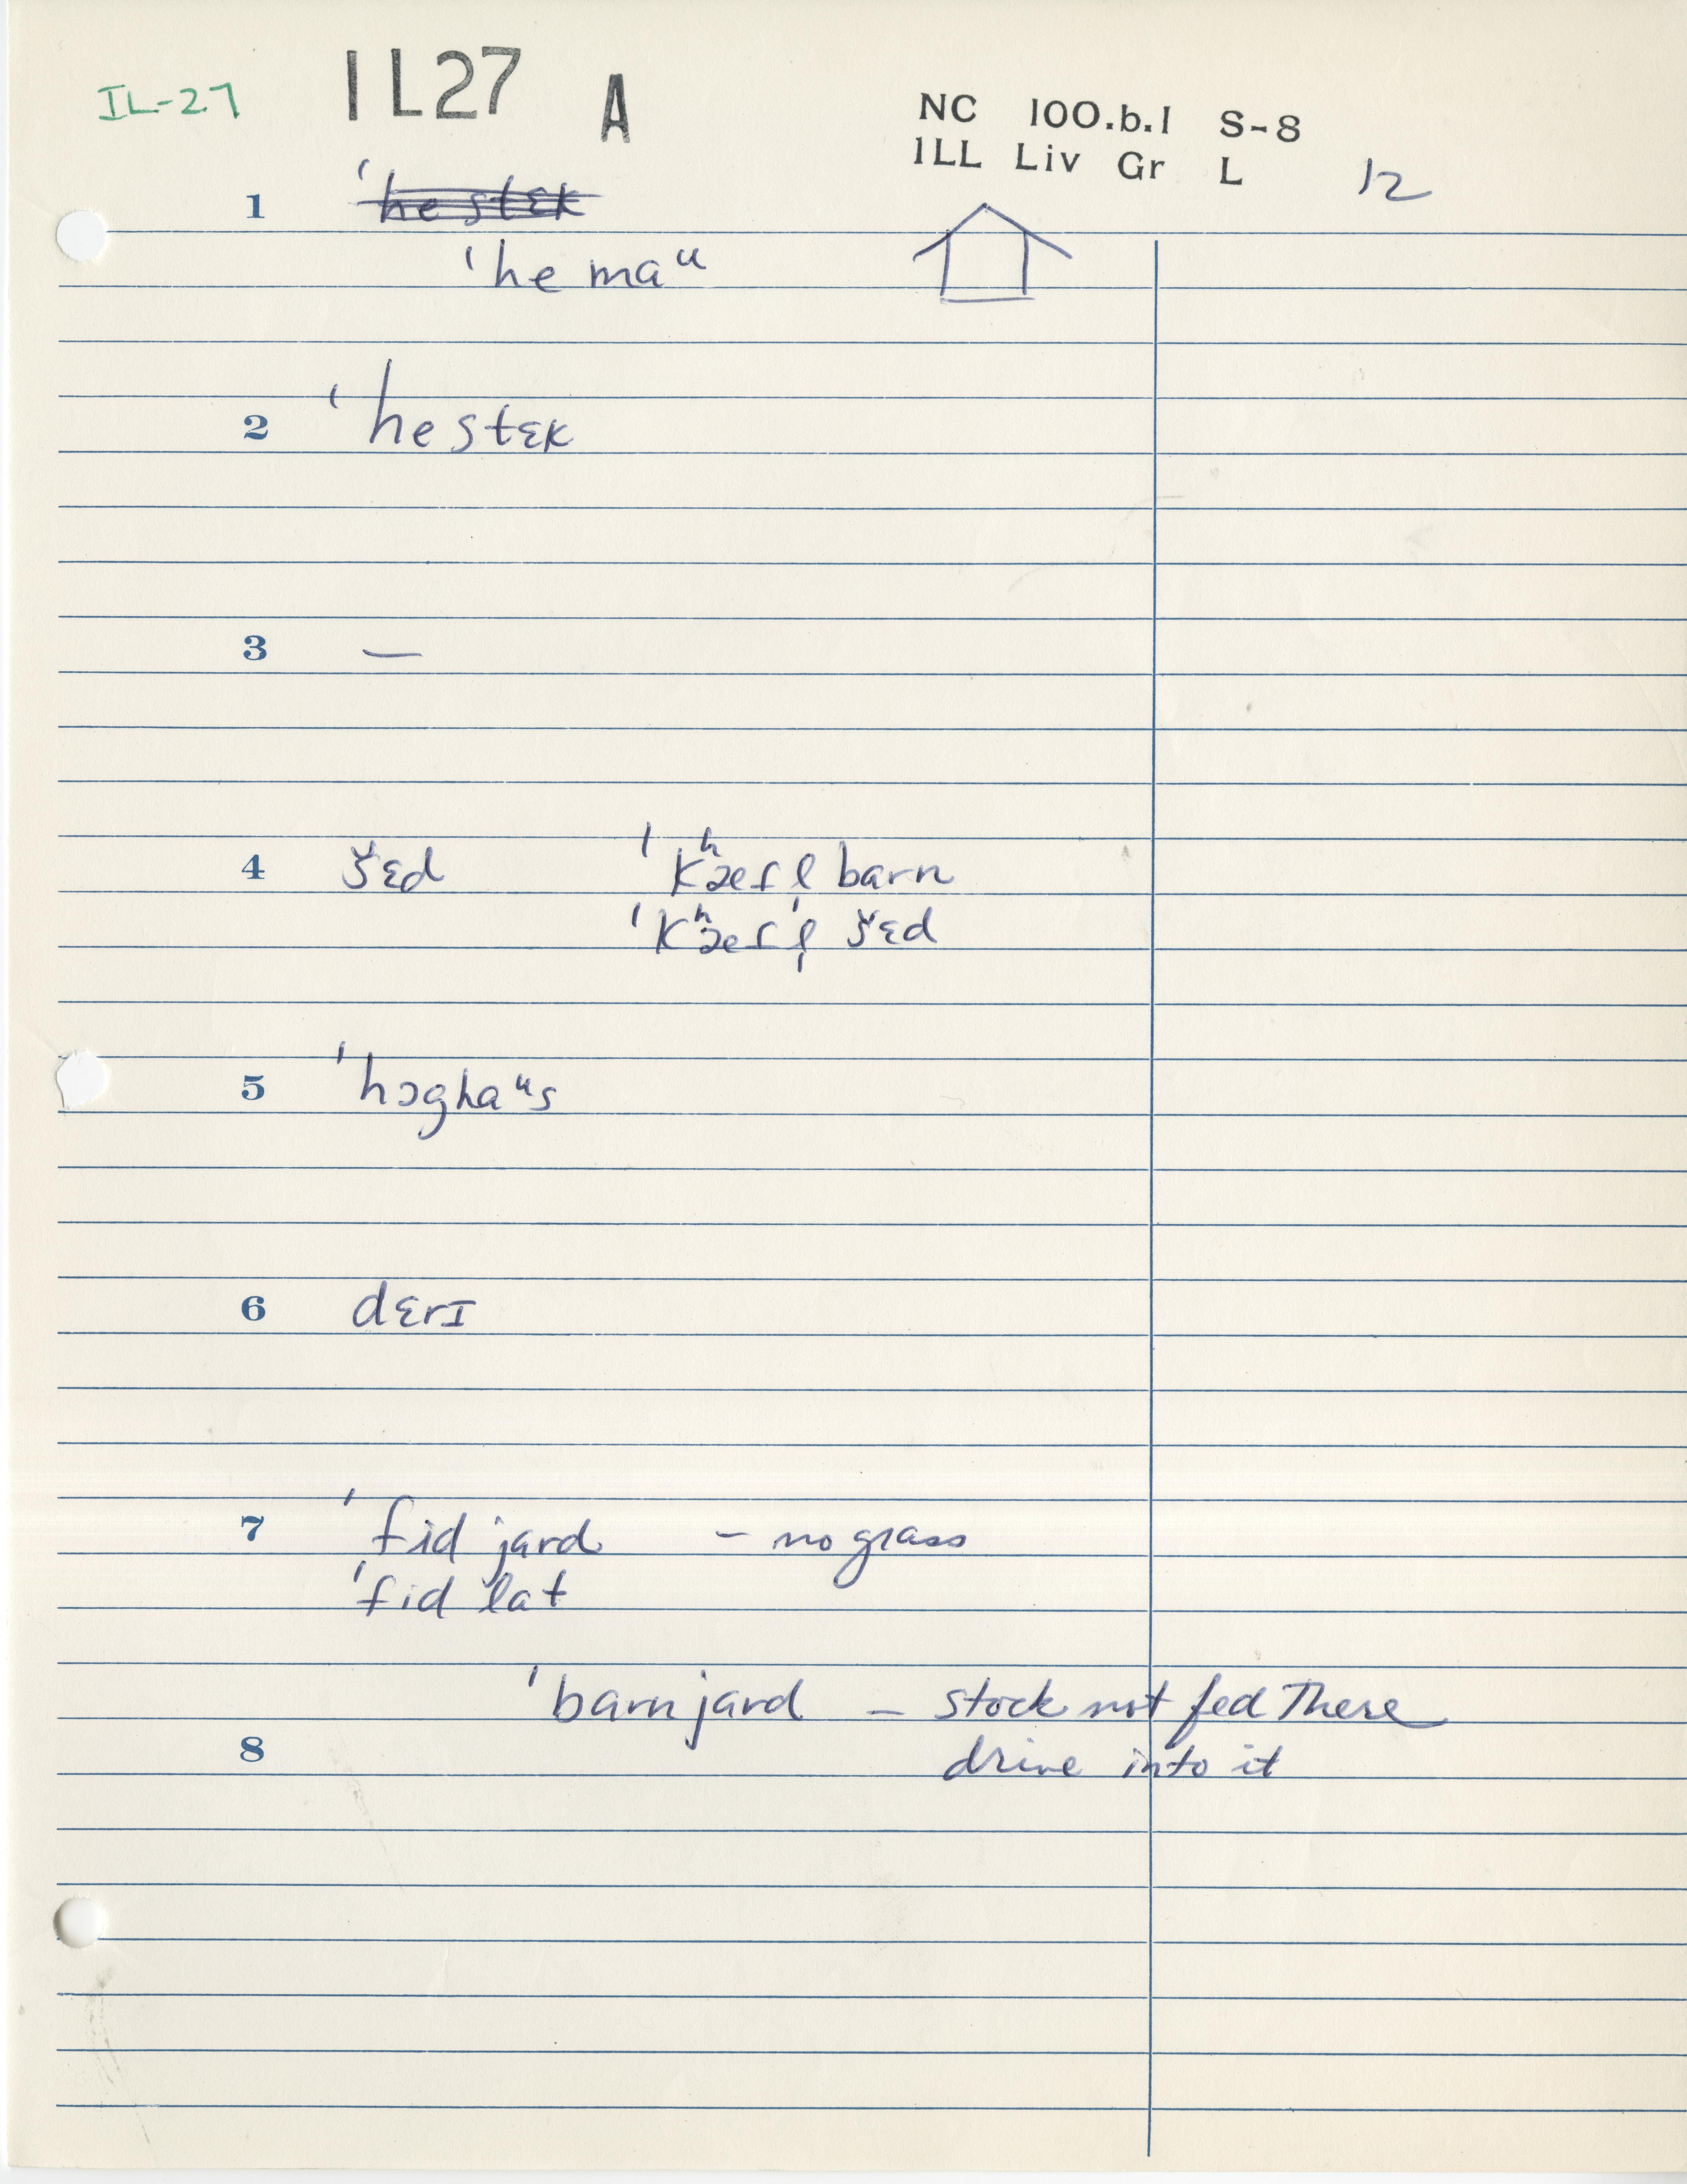 IL-27 IL27 A NC 100.b.1 S-8
ILL Liv Gr L 12
1 ˈhestɛk
ˈhemaᵘ
2 ˈhestɛk
3 —
4 š̌ɛd ˈkʰæfl barn
ˈkʰæfl̩ šɛd
5 ˈhɔghaᵘs
6 dɛrɪ
7 ˈfid jard – no grass
ˈfid lat
ˈbarnjard – stock not fed There
8 drive into it